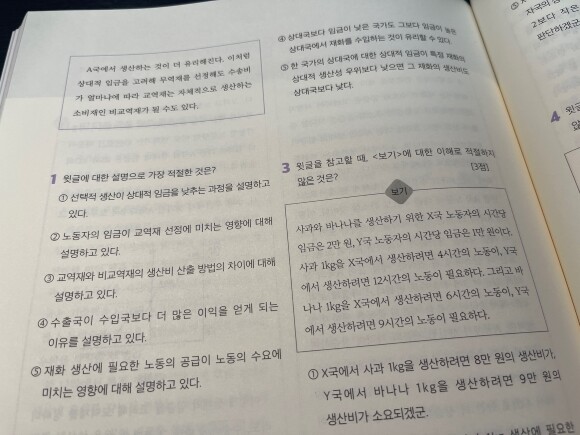 A국에서 생산하는 것이 더 유리해진다. 이처럼
상대적 임금을 고려해 무역재를 선정해도 수송비
가 얼마나에 따라 교역재는 자체적으로 생산하는
소비재인 비교역재가 될 수도 있다.
1 윗글에 대한 설명으로 가장 적절한 것은?
① 선택적 생산이 상대적 임금을 낮추는 과정을 설명하고
있다.
② 노동자의 임금이 교역재 선정에 미치는 영향에 대해
설명하고 있다.
③ 교역재와 비교역재의 생산비 산출 방법의 차이에 대해
설명하고 있다.
④ 수출국이 수입국보다 더 많은 이익을 얻게 되는
이유를 설명하고 있다.
⑤ 재화 생산에 필요한 노동의 공급이 노동의 수요에
미치는 영향에 대해 설명하고 있다.
④ 상대국보다 임금이 낮은 국가도 그보다 임금이 높은
상대국에서 재화를 수입하는 것이 유리할 수 있다.
⑤ 한 국가의 상대국에 대한 상대적 임금이 특정 재화의
상대적 생산성 우위보다 낮으면 그 재화의 생산비도
상대국보다 낮다.
3 윗글을 참고할 때, <보기>에 대한 이해로 적절하지
않은 것은? [3점]
보기
사과와 바나나를 생산하기 위한 X국 노동자의 시간당
임금은 2만 원, Y국 노동자의 시간당 임금은 1만 원이다.
사과 1kg을 X국에서 생산하려면 4시간의 노동이, Y국
에서 생산하려면 12시간의 노동이 필요하다. 그리고 바
나나 1kg을 X국에서 생산하려면 6시간의 노동이, Y국
에서 생산하려면 9시간의 노동이 필요하다.
① X국에서 사과 1kg을 생산하려면 8만 원의 생산비가,
Y국에서 바나나 1kg을 생산하려면 9만 원의
생산비가 소요되겠군.
생산에 필요한
자국의
2보다 작은
판단하겠
4